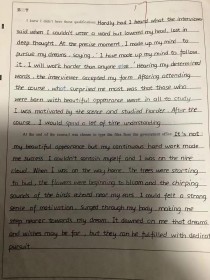 第二节
I knew I didn't have those qualifications. Hardly had I heard what the interviewer
said when I couldn't utter a word but lowered my head, lost in
deep thought. At the precise moment, I made up my mind to
pursue my dreams, saying, "I have made up my mind to follow
it, I will work harder than anyone else." Hearing my determined
words, the interviewer accepted my form. Affecting attending
the course, what surprised me most was that those who
were born with beautiful appearance went in all to study.
I was motivated by the sense and studied harder. After the
course, I would gain a lot of time understanding.
At the end of the course I was anxious to open the film from the government office. It's not
my beautiful appearance but my continuous hard work made
me success. I couldn't contain myself and I was on the nine
cloud. When I was on the way home, the trees were starting
to bud, the flowers were beginning to bloom and the chirping
sounds of the birds wound near my ears. I could felt a strong
sense of motivation surged through my body, making me
step nearer towards my dream. It dawned on me that dreams
and wishes may be far, but they can be fulfilled with dedicated
pursuit.